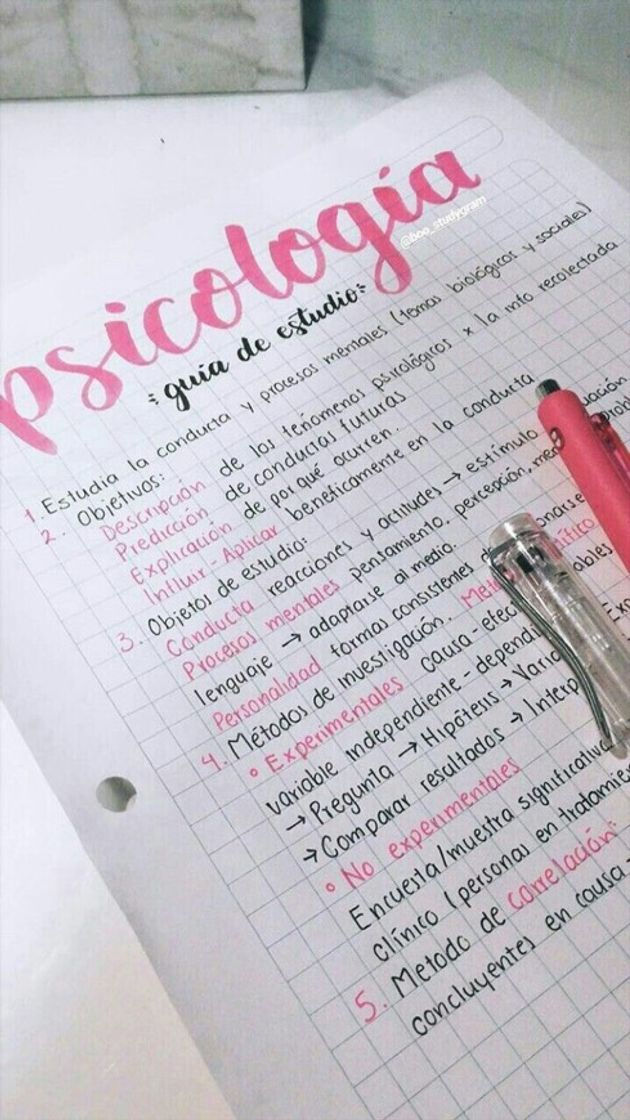 psicología
@boo_studygram
guía de estudio:
1. Estudia la conducta y procesos mentales (temas biológicos y sociales)
2. Objetivos:
Descripción de los fenómenos psicológicos x la info recolectada
Predicción de conductas futuras
Explicación de por qué ocurren.
Influir-Aplicar benéficamente en la conducta
3. Objetos de estudio:
Conducta reacciones y actitudes → estímulo
Procesos mentales pensamiento, percepción,
lenguaje → adaptarse al medio.
Personalidad formas consistentes
4. Métodos de investigación.
° Experimentales causa-efec
variable independiente-dependi
→ Pregunta → Hipótesis → Vario
→ Comparar resultados → Interp
° No experimentales
Encuesta/muestra significativa
clínico (personas en tratamie
5. Metodo de correlación:
concluyentes en causa-